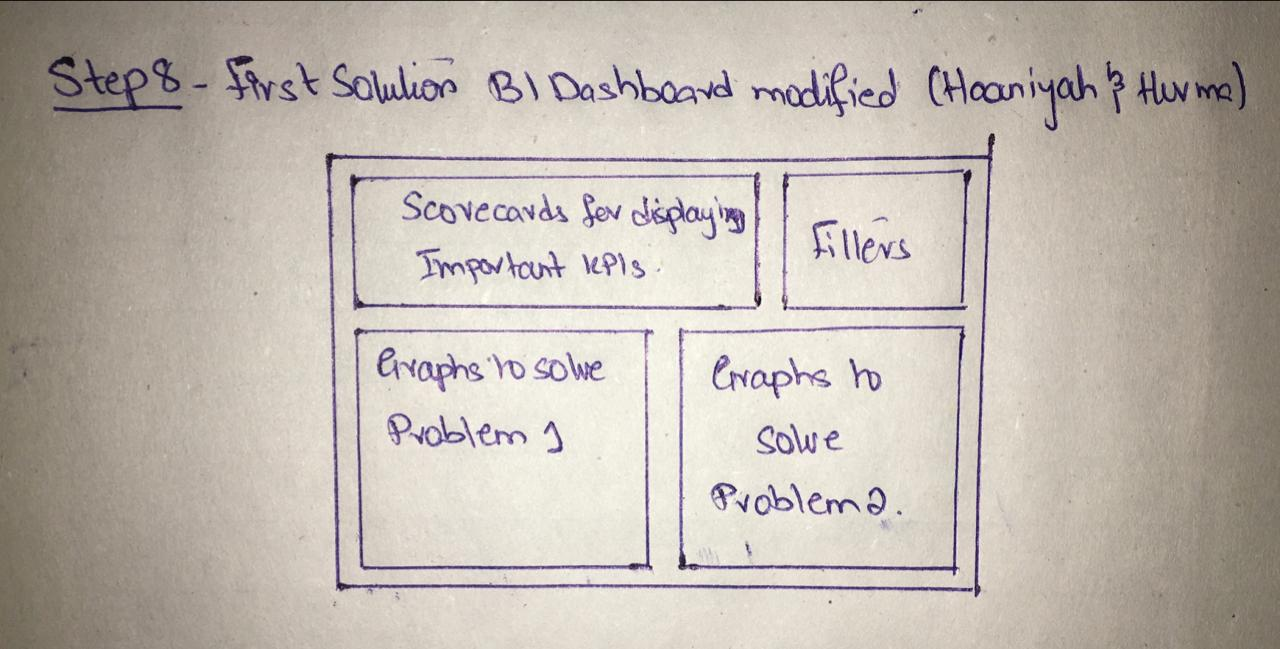 Step 8 - First Solution BI Dashboard modified (Haaniyah & Hurma)
Scorecards for displaying
Important KPIs.
Fillers
Graphs to solve
Problem 1
Graphs to
solve
Problem 2.